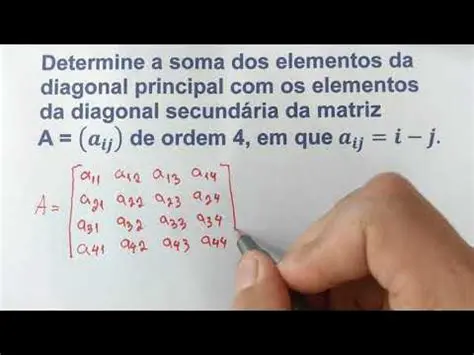 Determine a soma dos elementos da
diagonal principal com os elementos
da diagonal secundária da matriz
A = (aᵢⱼ) de ordem 4, em que aᵢⱼ = i − j.
a₁₁ a₁₂ a₁₃ a₁₄
a₂₁ a₂₂ a₂₃ a₂₄
A = a₃₁ a₃₂ a₃₃ a₃₄
a₄₁ a₄₂ a₄₃ a₄₄